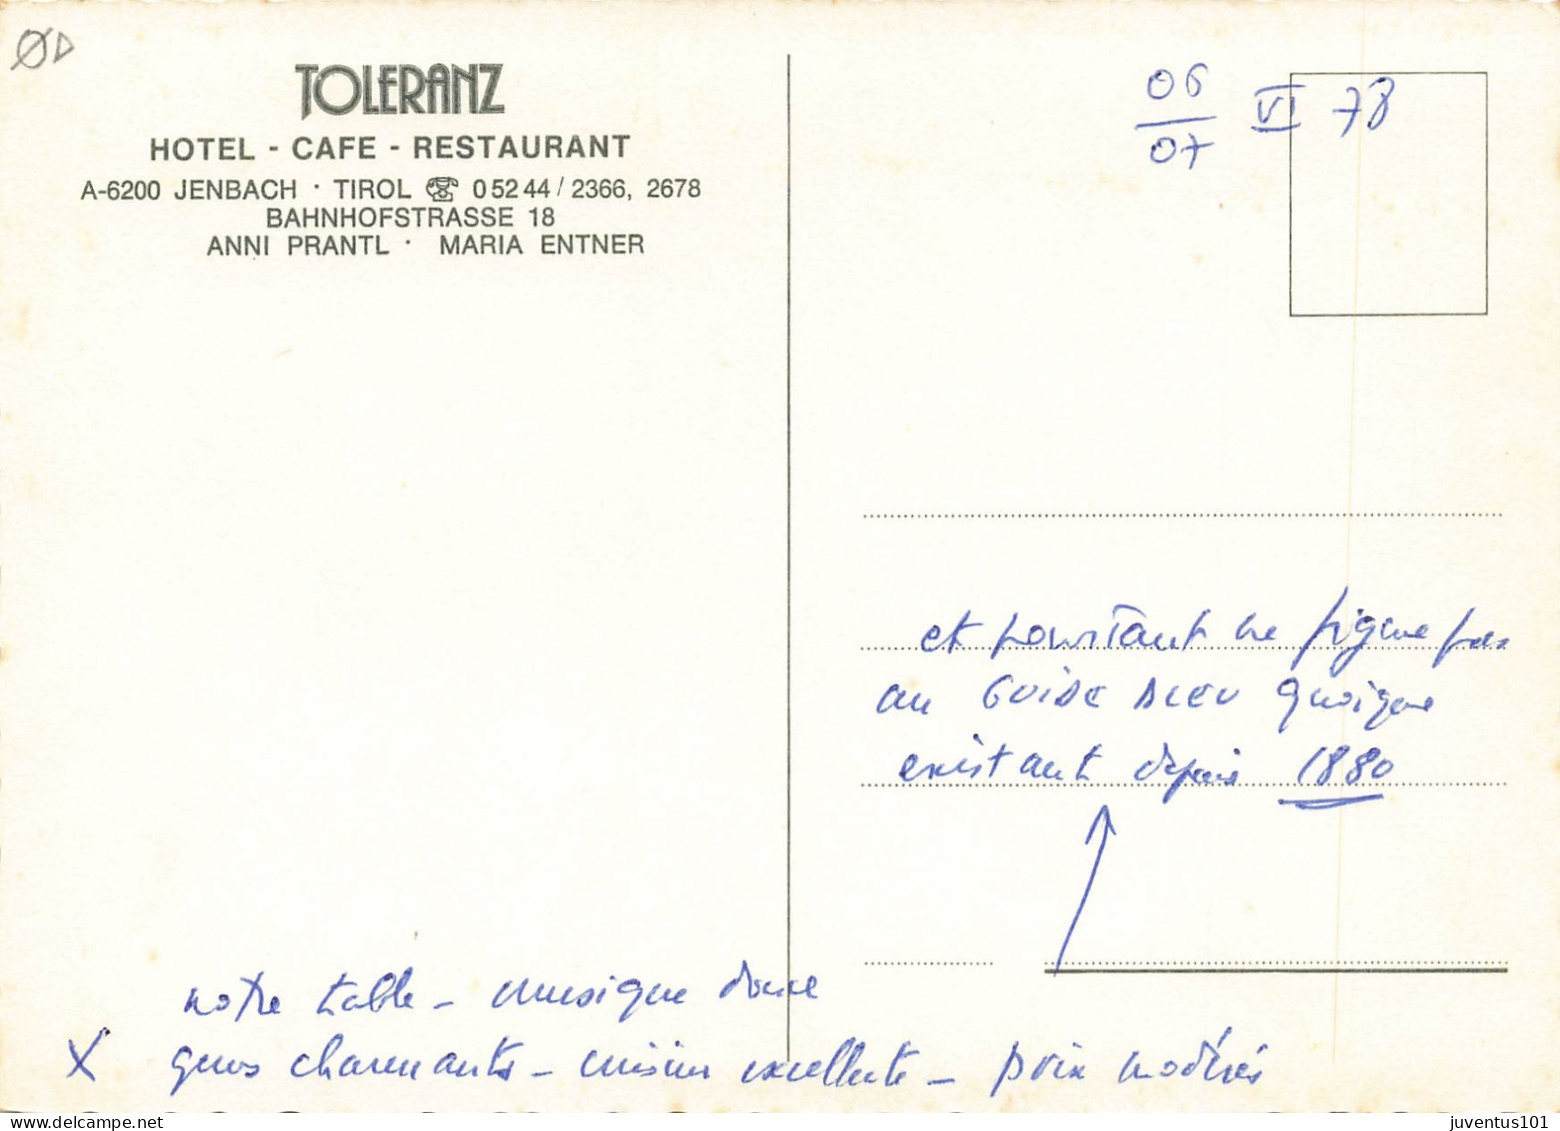 TOLERANZ
HOTEL - CAFE - RESTAURANT
A-6200 JENBACH · TIROL ☎ 05244/2366, 2678
BAHNHOFSTRASSE 18
ANNI PRANTL · MARIA ENTNER
06
07 VI 78
et pourtant ne figure pas
au GUIDE BLEU quoique
existant depuis 1880
notre table – musique douce
X gens charmants – cuisine excellente – prix modérés
juventus101